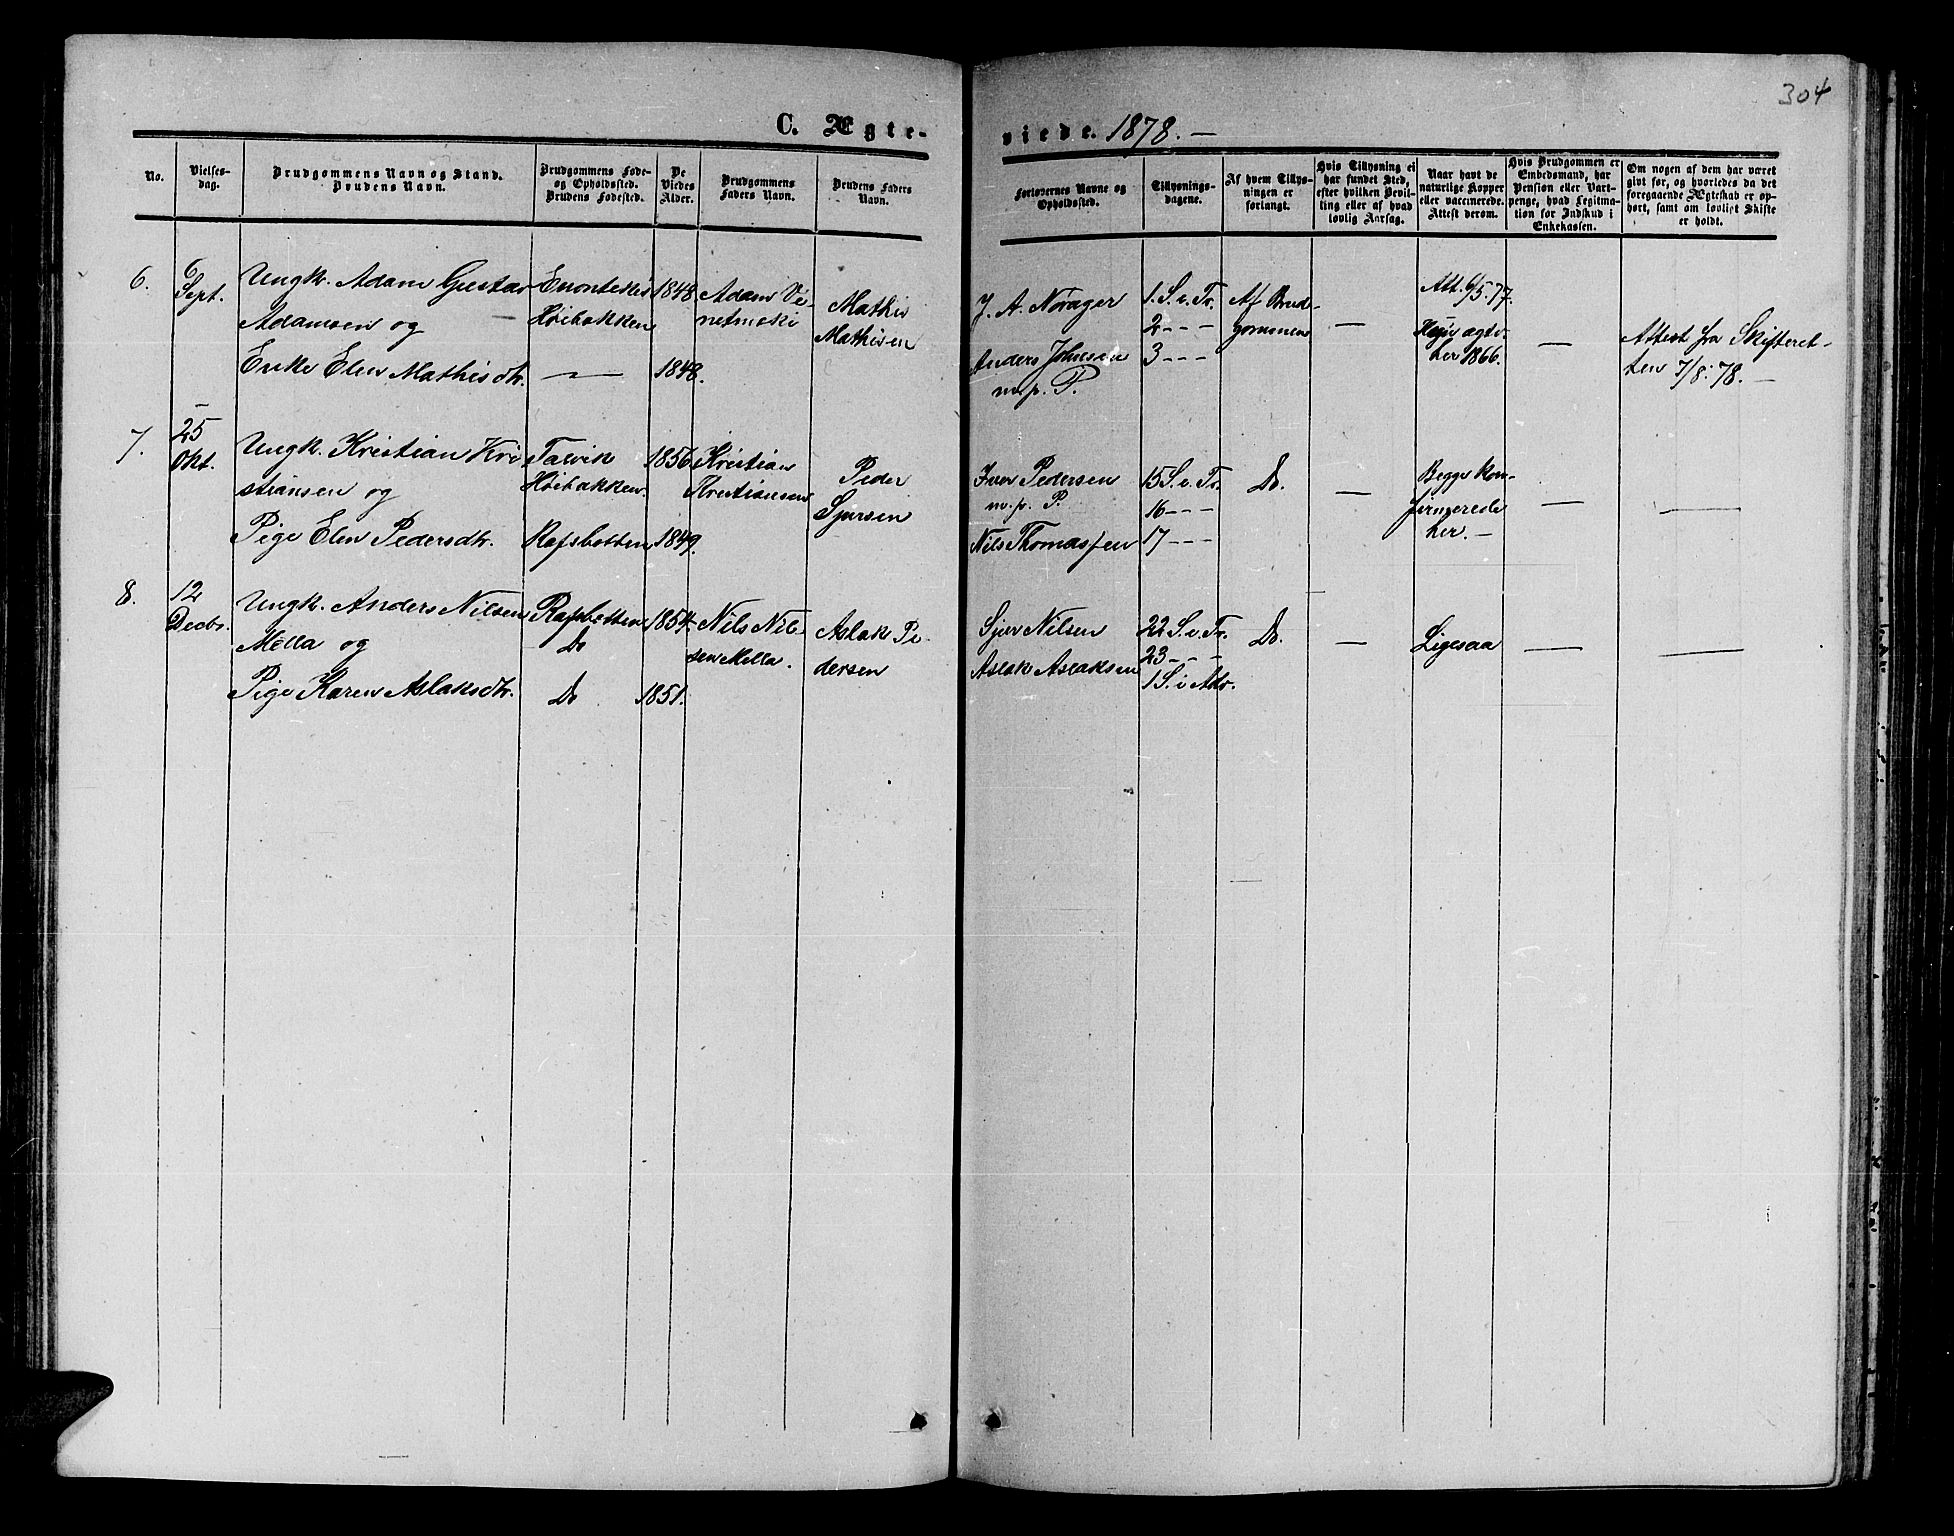 304
C. Ægteviede. 1878. —
No.
Vielsesdag.
Brudgommens Navn og Stand.
Brudens Navn.
Brudgommens Føde-
og Opholdssted.
Brudens Fødested.
De
Viedes
Alder.
Brudgommens
Faders Navn.
Brudens Faders
Navn.
Forlovernes Navne og
Opholdssted.
Tillysnings-
dagene.
Af hvem Tillys-
ningen er
forlangt.
Hvis Tillysning ei
har fundet Sted,
efter hvilken Bevil-
ling eller af hvad
lovlig Aarsag.
Naar havt de
naturlige Kopper
eller vaccinerede.
Attest derom.
Hvis Brudgommen er
Embedsmand, har
Pension eller Vart-
penge, hvad Legitima-
tion for Indskud i
Enkekassen.
Om nogen af dem har været
givt før, og hvorledes da det
foregaaende Ægteskab er op-
hørt, samt om lovligt Skifte
er holdt.
6.
6
Sept.
Ungk. Adam Gustav
Adamsen og
Enke Elen Mathisdtr.
Enontekis
Høibakken
—
1848.
1848.
Adam
Mathis
Mathisen
J. A. Norager
Anders Johnsen
m. p. P.
1. S. e. Tr.
2 - - -
3 - - -
Af Brud-
gommen
—
Att. 6/5. 77.
her 1866.
—
Attest fra Skifteret-
ten 7/8. 78. —
7.
25
Okt.
Ungk. Kristian Kri-
stiansen og
Pige Elen Pedersdtr.
Talvik
Høibakken.
Rafsbotten
1856
1849.
Kristian
Kristiansen
Peder
Sjursen
Iver Pedersen
m. p. P.
Nils Thomassen
15 S. e. Tr.
16 - - -
17 - - -
Do.
—
Begge kon-
firmerede
her. —
—
—
8.
12
Decbr.
Ungk. Anders Nilsen
Mella og
Pige Karen Aslaksdtr.
Rafsbotten
Do
Do
1854.
1851.
Nils Nil-
sen Mella.
Aslak Pe-
dersen
Sjur Nilsen
Aslak Aslaksen
22 S. e. Tr.
23 - - -
1 S. i Adv.
Do.
—
Ligesaa
—
—